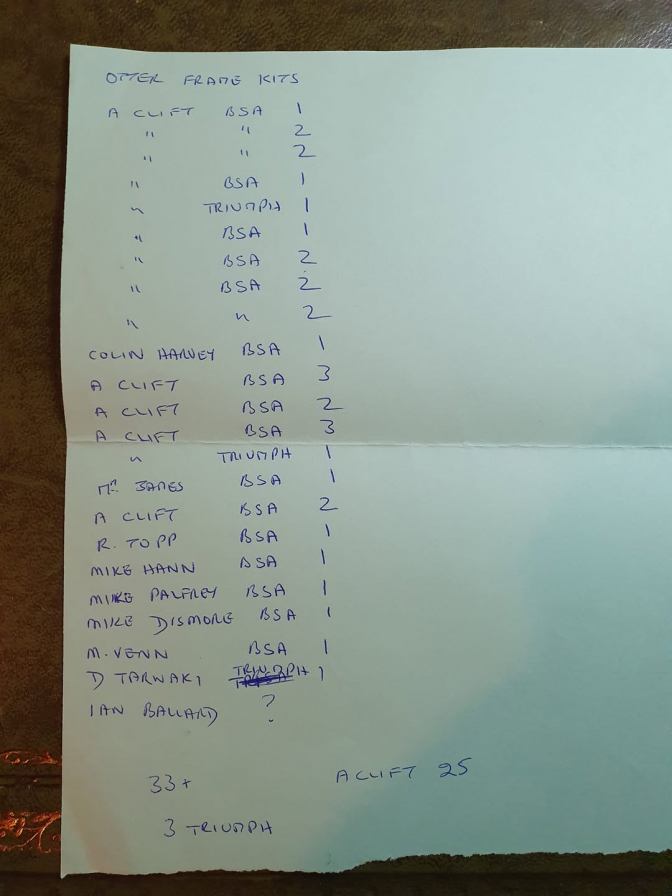 OTTER FRAME KITS
A CLIFT BSA 1
" " 2
" " 2
" BSA 1
" TRIUMPH 1
" BSA 1
" BSA 2
" BSA 2
" " 2
COLIN HARVEY BSA 1
A CLIFT BSA 3
A CLIFT BSA 2
A CLIFT BSA 3
" TRIUMPH 1
MR. JAMES BSA 1
A CLIFT BSA 2
R. TOPP BSA 1
MIKE HANN BSA 1
MIKE PALFREY BSA 1
MIKE DISMORE BSA 1
M. VENN BSA 1
D TARWAKI TRIUMPH 1
IAN BALLARD ?
33+ A CLIFT 25
3 TRIUMPH